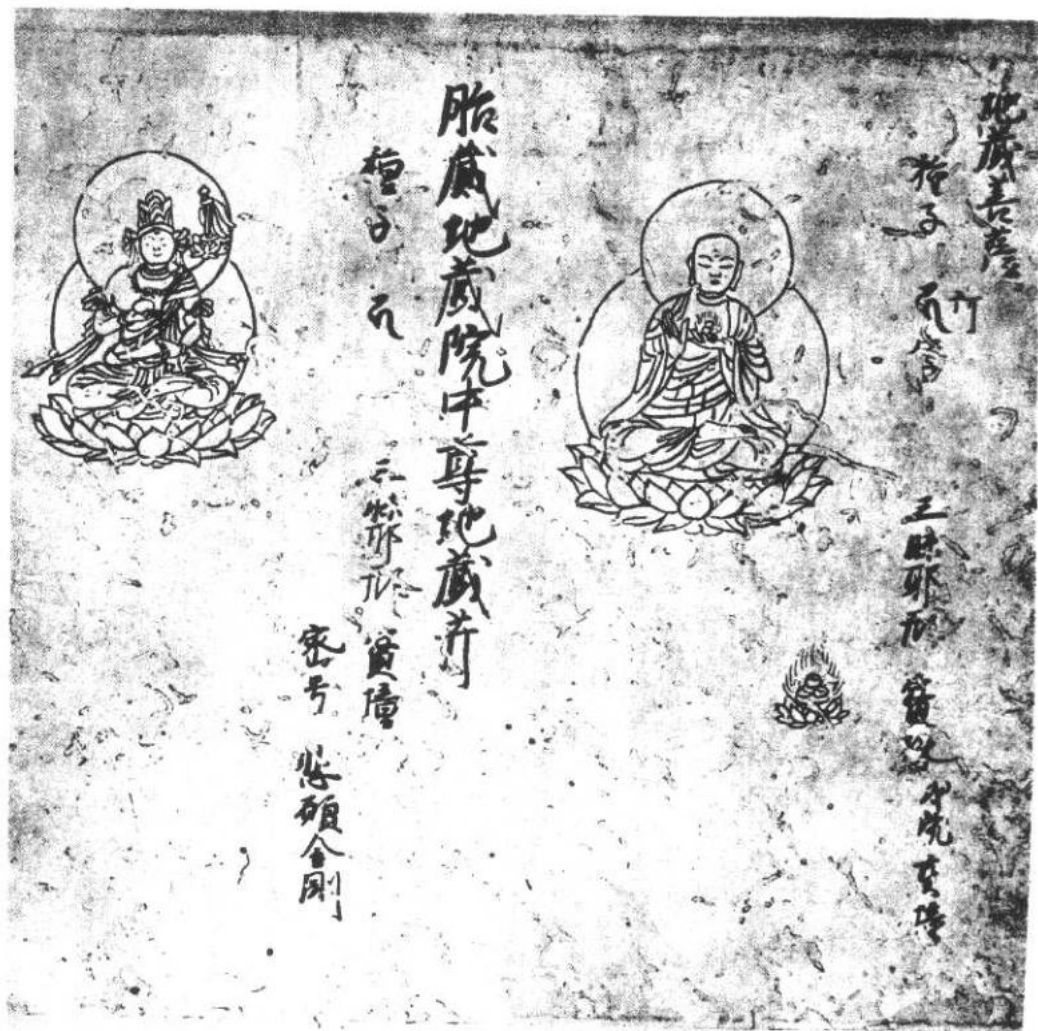 地蔵菩薩
種子
三昧耶形 寳珠
胎蔵地蔵院中尊地蔵𦬇
種子
三昧耶形 寳幢
密号 悲願金剛